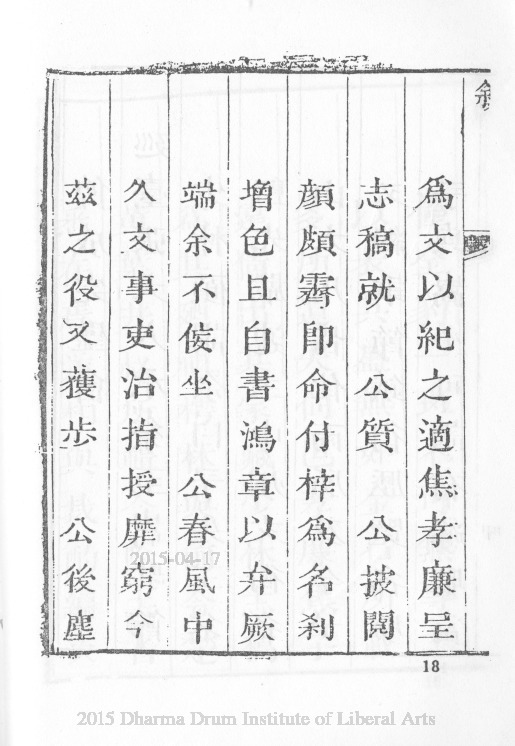 為文以紀之適焦孝廉呈
志稿就　公質　公披閱
顏頗霽即命付梓為名剎
增色且自書鴻章以弁厥
端余不佞坐　公春風中
久文事吏治指授靡窮今
茲之役又獲步　公後塵
18
2015-04-17
2015 Dharma Drum Institute of Liberal Arts